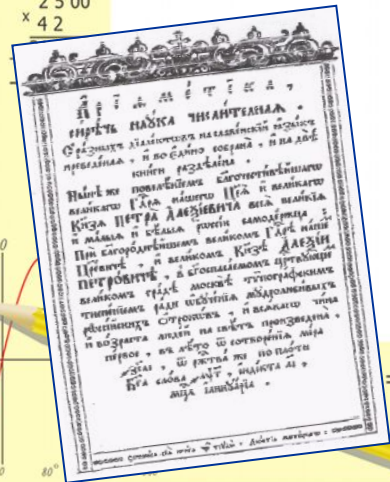 2 5 00
x 4 2
Арїѳметїка,
сирѣчь наука числителная.
С̾ разныхъ дїалектовъ на славенскїй языкъ
преведеная, и во едино собрана, и на двѣ
книги раздѣлена.
Нынѣ же повелѣнїемъ благочестивѣйшагѡ
великагѡ Гдⷭ҇ря нашегѡ Цр҃я и великагѡ
Кнⷾ҇зя ПЕТРА АЛЕѮЇЕВИЧА всеѧ великїѧ
и малыѧ и бѣлыѧ рѡссїи самодержца
При благороднѣйшемъ великомъ Гдⷭ҇рѣ нашемъ
Цр҃евичѣ, и великомъ Кнⷾ҇зѣ АЛЕѮЇИ
ПЕТРОВИЧѢ, в̾ бг҃оспасаемомъ црⷭ҇твующемъ
великомъ градѣ москвѣ типографскимъ
тисненїемъ ради ѡбученїѧ мудролюбивыхъ
рѡссїйскихъ ѻтрокѡвъ, и всѧкагѡ чина
и возраста людей на свѣтъ произведена,
первое, въ лѣто ѿ сотворенїѧ мїра
҂зсаі, ѿ ржⷭ҇тва же по плоти
Бг҃а слова ҂аѱг, їндїкта аі,
мцⷭ҇а їаннуарїа.
0
0
80°